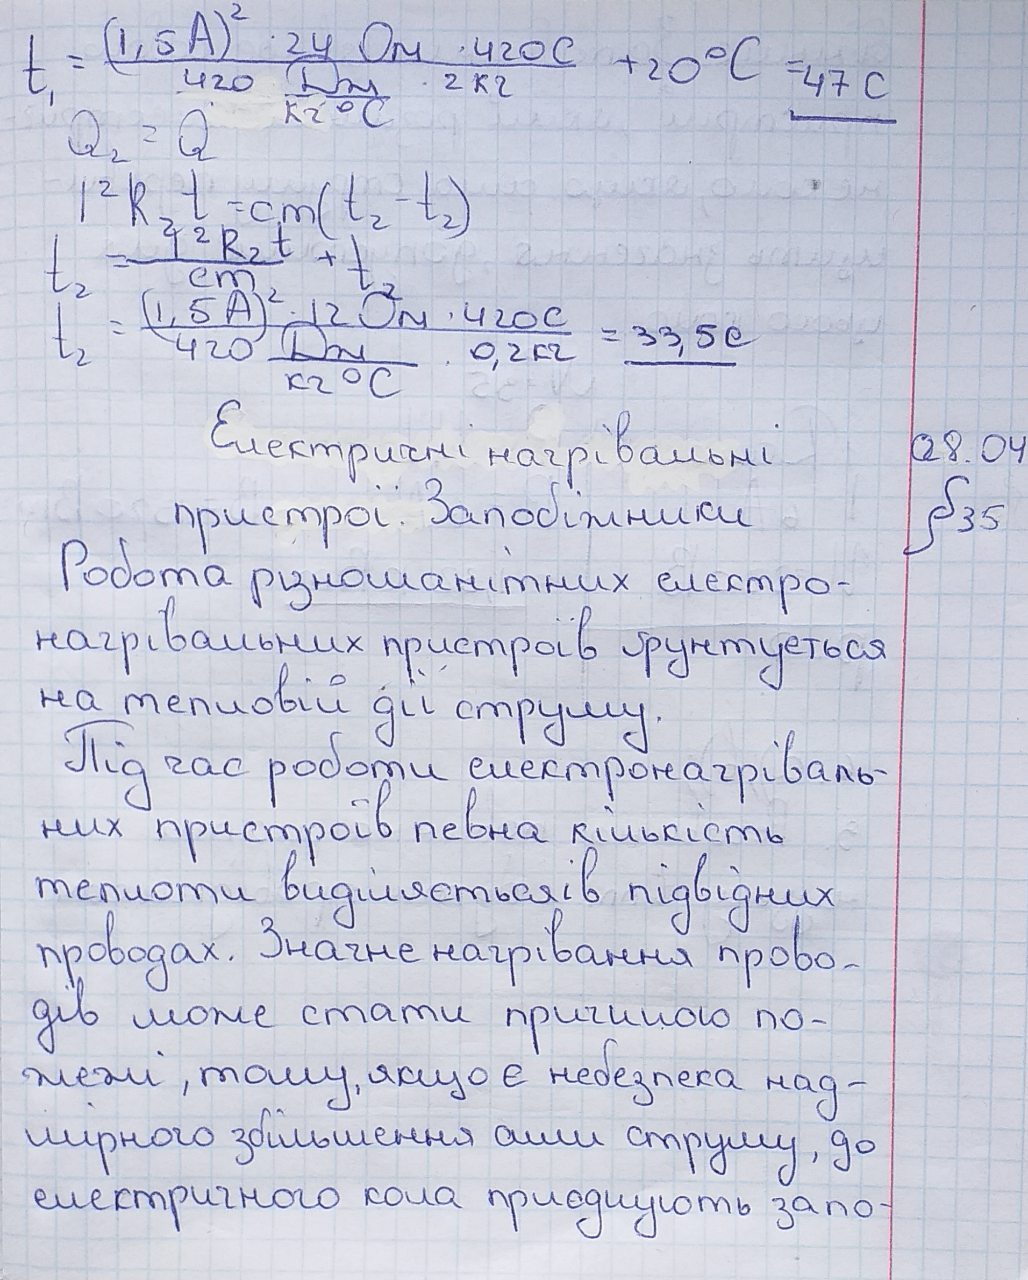 t₁ = (1,5 А)² · 24 Ом · 420С / 420 Дж/кг°С · 2 кг + 20°С = 47 С
Q₂ = Q
I²R₂t = cm(t₂ - t₂)
t₂ = I²R₂t / cm + t₂
t₂ = (1,5 А)² · 12 Ом · 420С / 420 Дж/кг°С · 0,2 кг = 33,5 С
Електричні нагрівальні 28.04
пристрої. Запобіжники §35
Робота різноманітних електро-
нагрівальних пристроїв ґрунтується
на тепловій дії струму.
Під час роботи електронагріваль-
них пристроїв певна кількість
теплоти виділяється і в підвідних
проводах. Значне нагрівання прово-
дів може стати причиною по-
жежі, тому, якщо є небезпека над-
мірного збільшення сили струму, до
електричного кола приєднують запо-